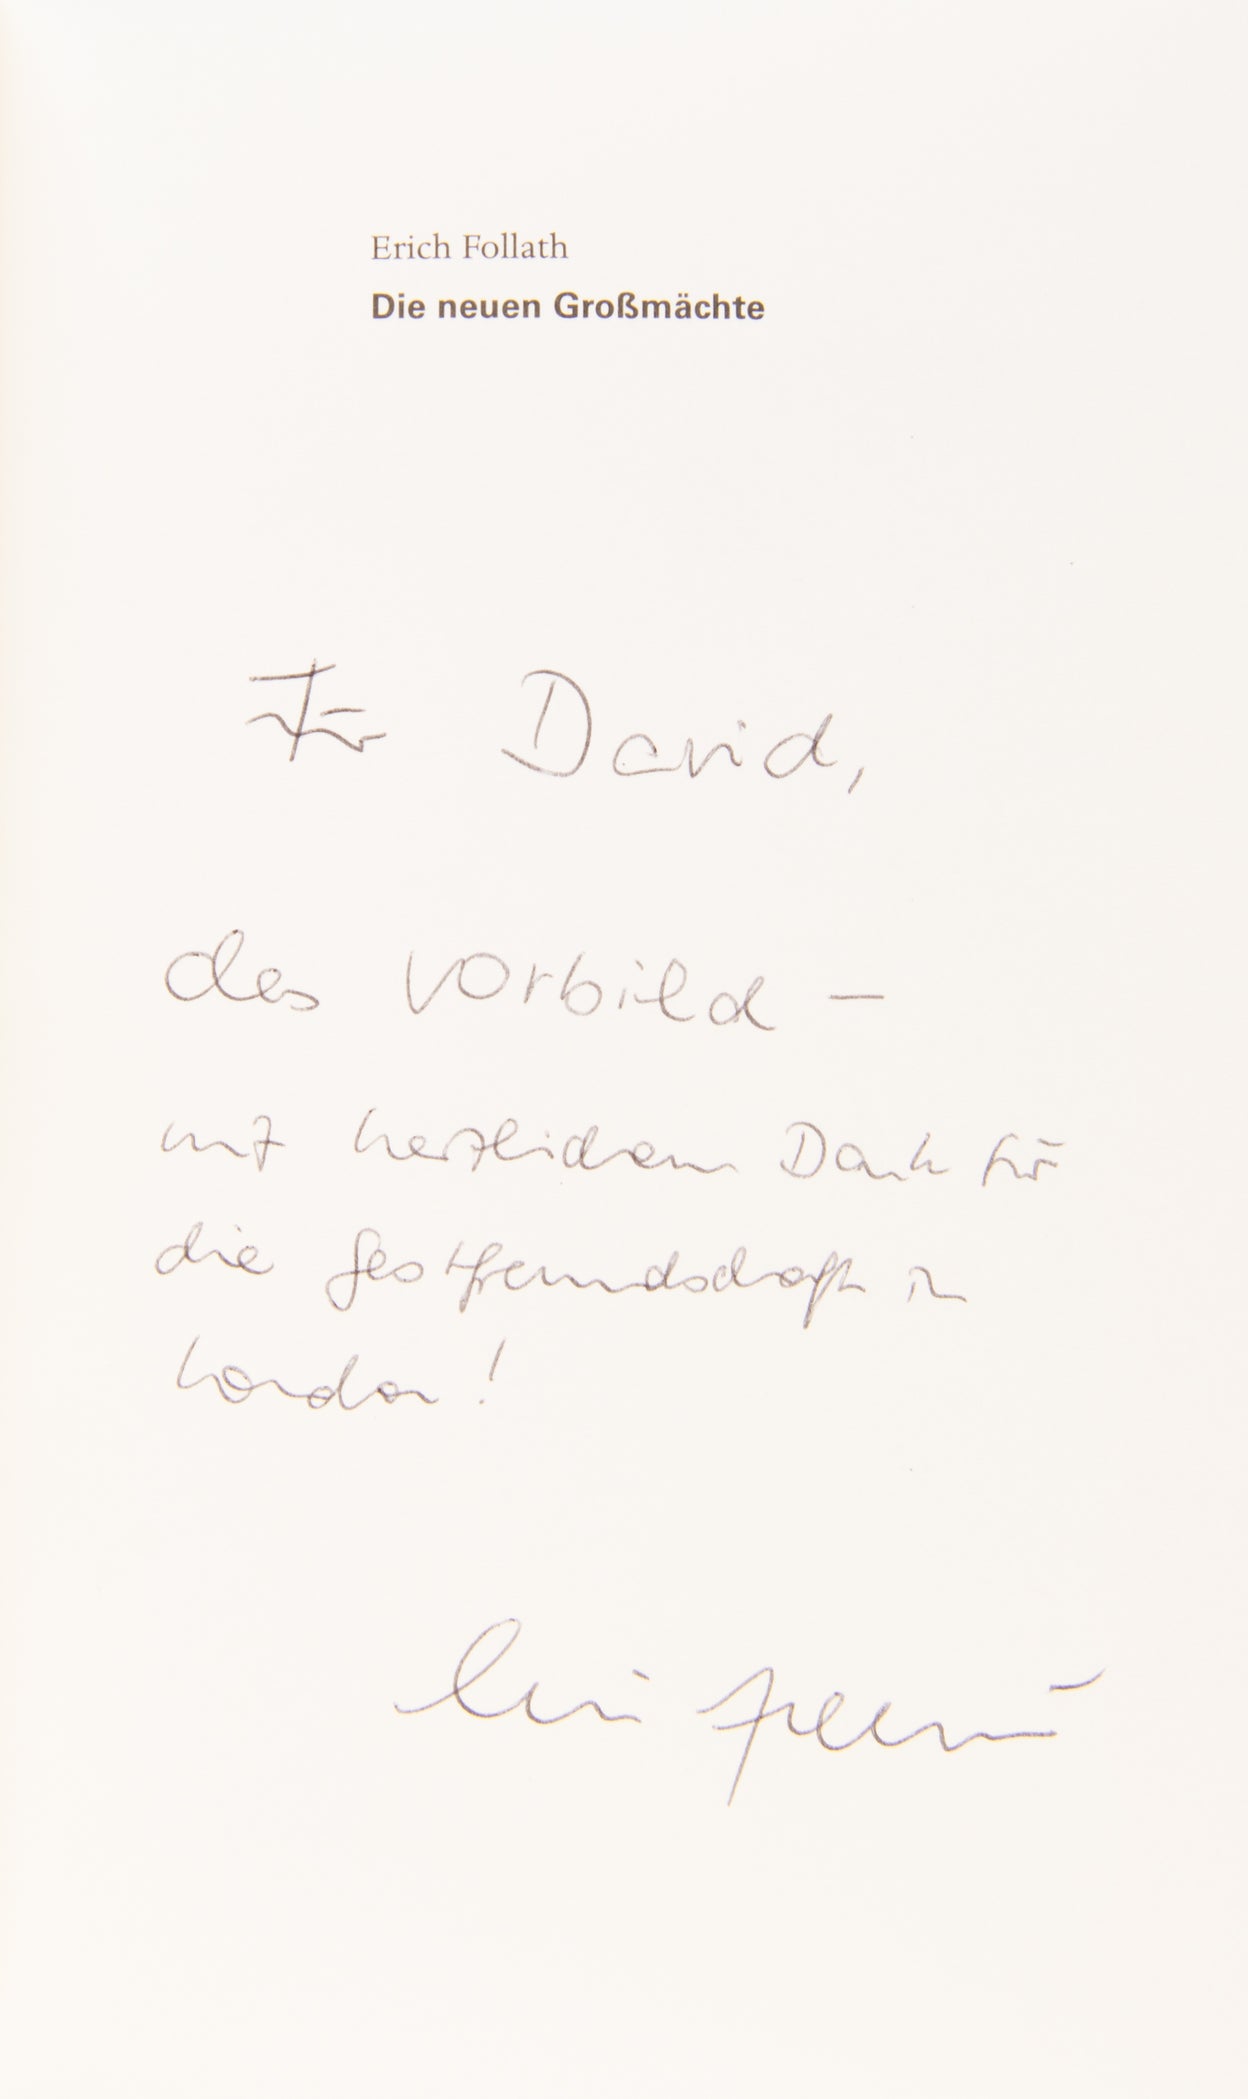 Erich Follath
Die neuen Großmächte
Für David,
das Vorbild –
mit herzlichem Dank für
die Gastfreundschaft in
London!
Erich Follath